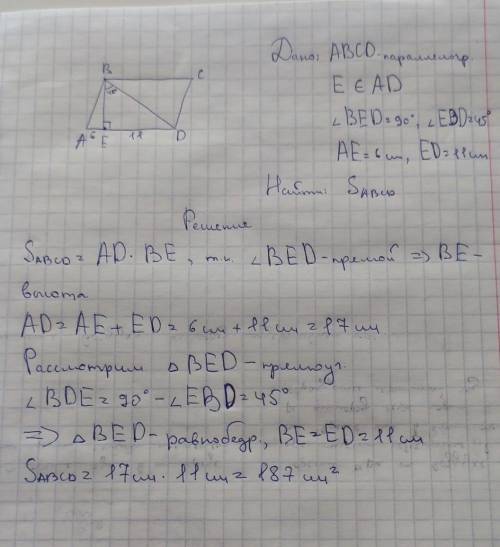 B
C
45
A 6 E 11 D
Дано: ABCD-параллелогр.
E ∈ AD
∠BED=90°, ∠EBD=45°
AE=6 см, ED=11 см
Найти: S_ABCD
Решение
S_ABCD = AD · BE, т.к. ∠BED-прямой ⇒ BE-
высота
AD = AE + ED = 6 см + 11 см = 17 см
Рассмотрим △BED-прямоуг.
∠BDE = 90° - ∠EBD = 45°
⇒ △BED-равнобедр., BE=ED=11 см
S_ABCD = 17 см · 11 см = 187 см²